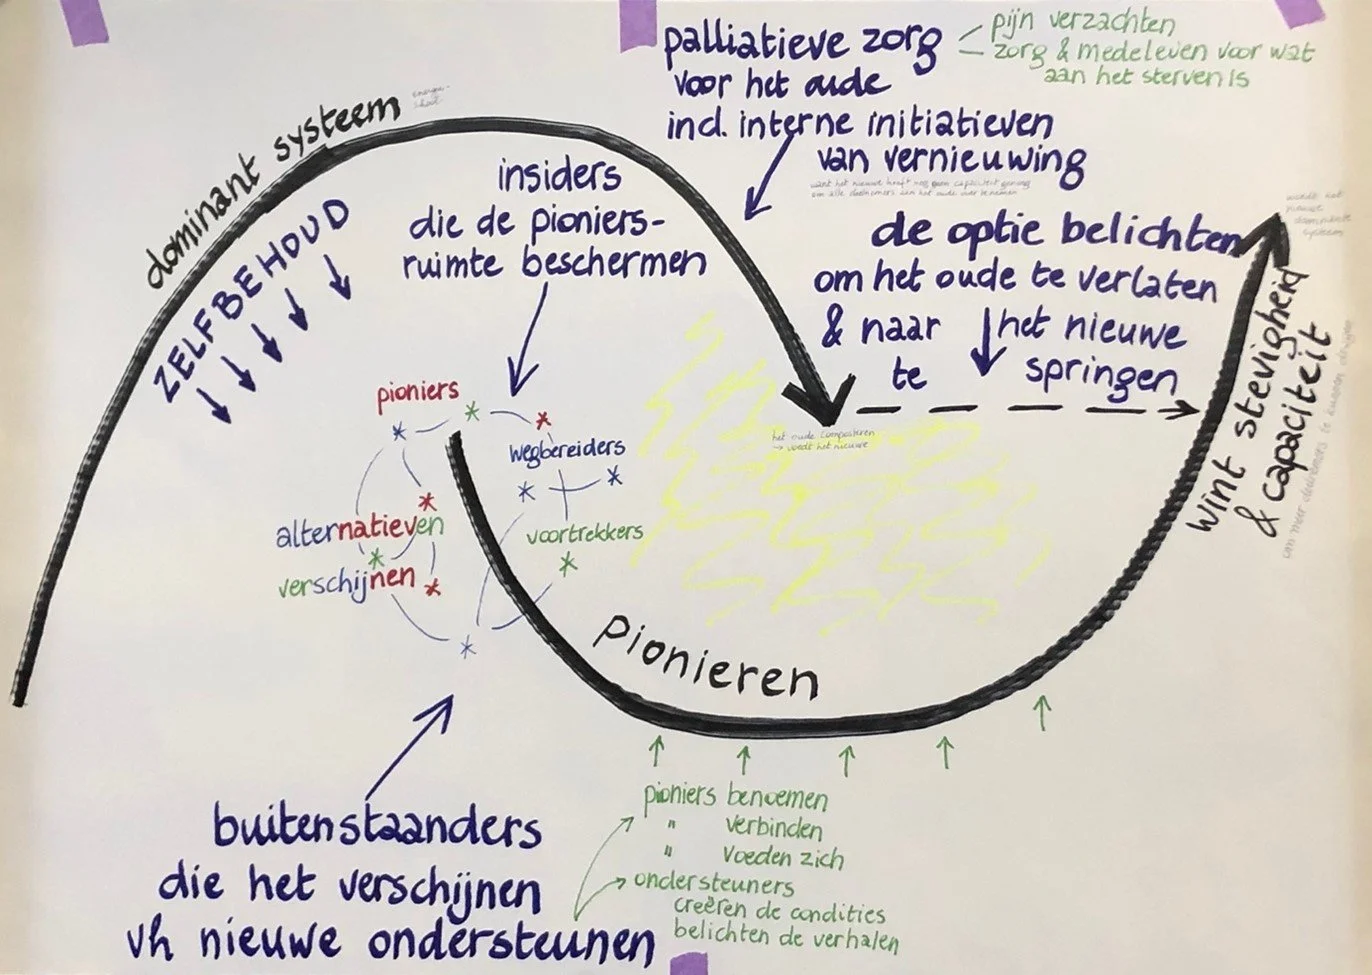 palliatieve zorg
voor het oude
incl. interne initiatieven
van vernieuwing
pijn verzachten
zorg & medeleven voor wat
aan het sterven is
want het nieuwe heeft nog geen capaciteit genoeg
om alle deelnemers van het oude over te nemen
dominant systeem
ZELFBEHOUD
insiders
die de pioniers-
ruimte beschermen
de optie belichten
om het oude te verlaten
& naar het nieuwe
te springen
wordt het
nieuwe
dominante
systeem
wint stevigheid
& capaciteit
om meer deelnemers te kunnen
het oude composteren
→ voedt het nieuwe
pioniers
wegbereiders
alternatieven
verschijnen
voortrekkers
pionieren
buitenstaanders
die het verschijnen
vh nieuwe ondersteunen
pioniers benoemen
" verbinden
" voeden zich
ondersteuners
creëren de condities
belichten de verhalen